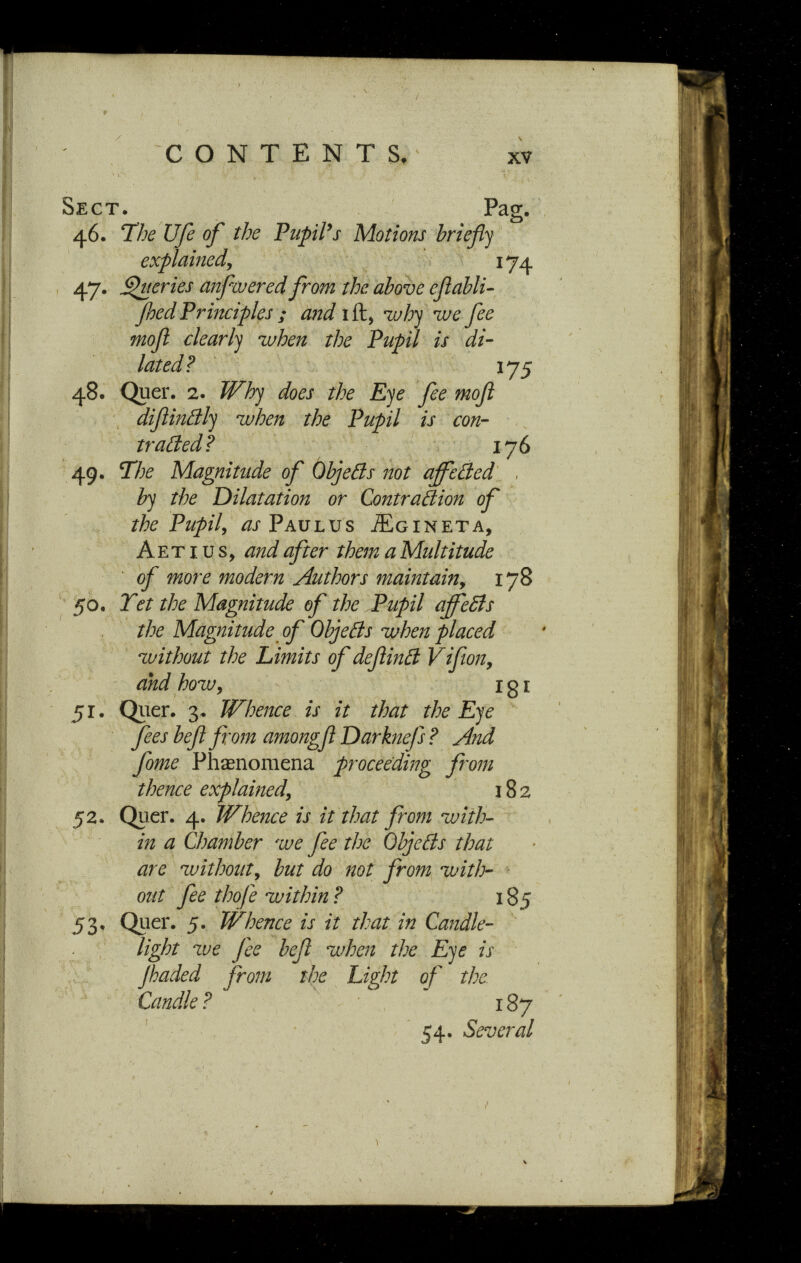 CONTENTS. xv
Sect. Pag.
46. The Uſe of the Pupil's Motions briefly
explained, 174
47. Queries anſwered from the above eſtabli-
ſhed Principles; and 1ſt, why we ſee
moſt clearly when the Pupil is di-
lated? 175
48. Quer. 2. Why does the Eye ſee moſt
diſtinctly when the Pupil is con-
tracted? 176
49. The Magnitude of Objects not affected
by the Dilatation or Contraction of
the Pupil, as Paulus Ægineta,
Aetius, and after them a Multitude
of more modern Authors maintain, 178
50. Yet the Magnitude of the Pupil affects
the Magnitude of Objects when placed
without the Limits of deſtinct Viſion,
and how, 181
51. Quer. 3. Whence is it that the Eye
ſees beſt from amongſt Darkneſs? And
ſome Phænomena proceeding from
thence explained, 182
52. Quer. 4. Whence is it that from with-
in a Chamber we ſee the Objects that
are without, but do not from with-
out ſee thoſe within? 185
53. Quer. 5. Whence is it that in Candle-
light we ſee beſt when the Eye is
ſhaded from the Light of the
Candle? 187
54. Several